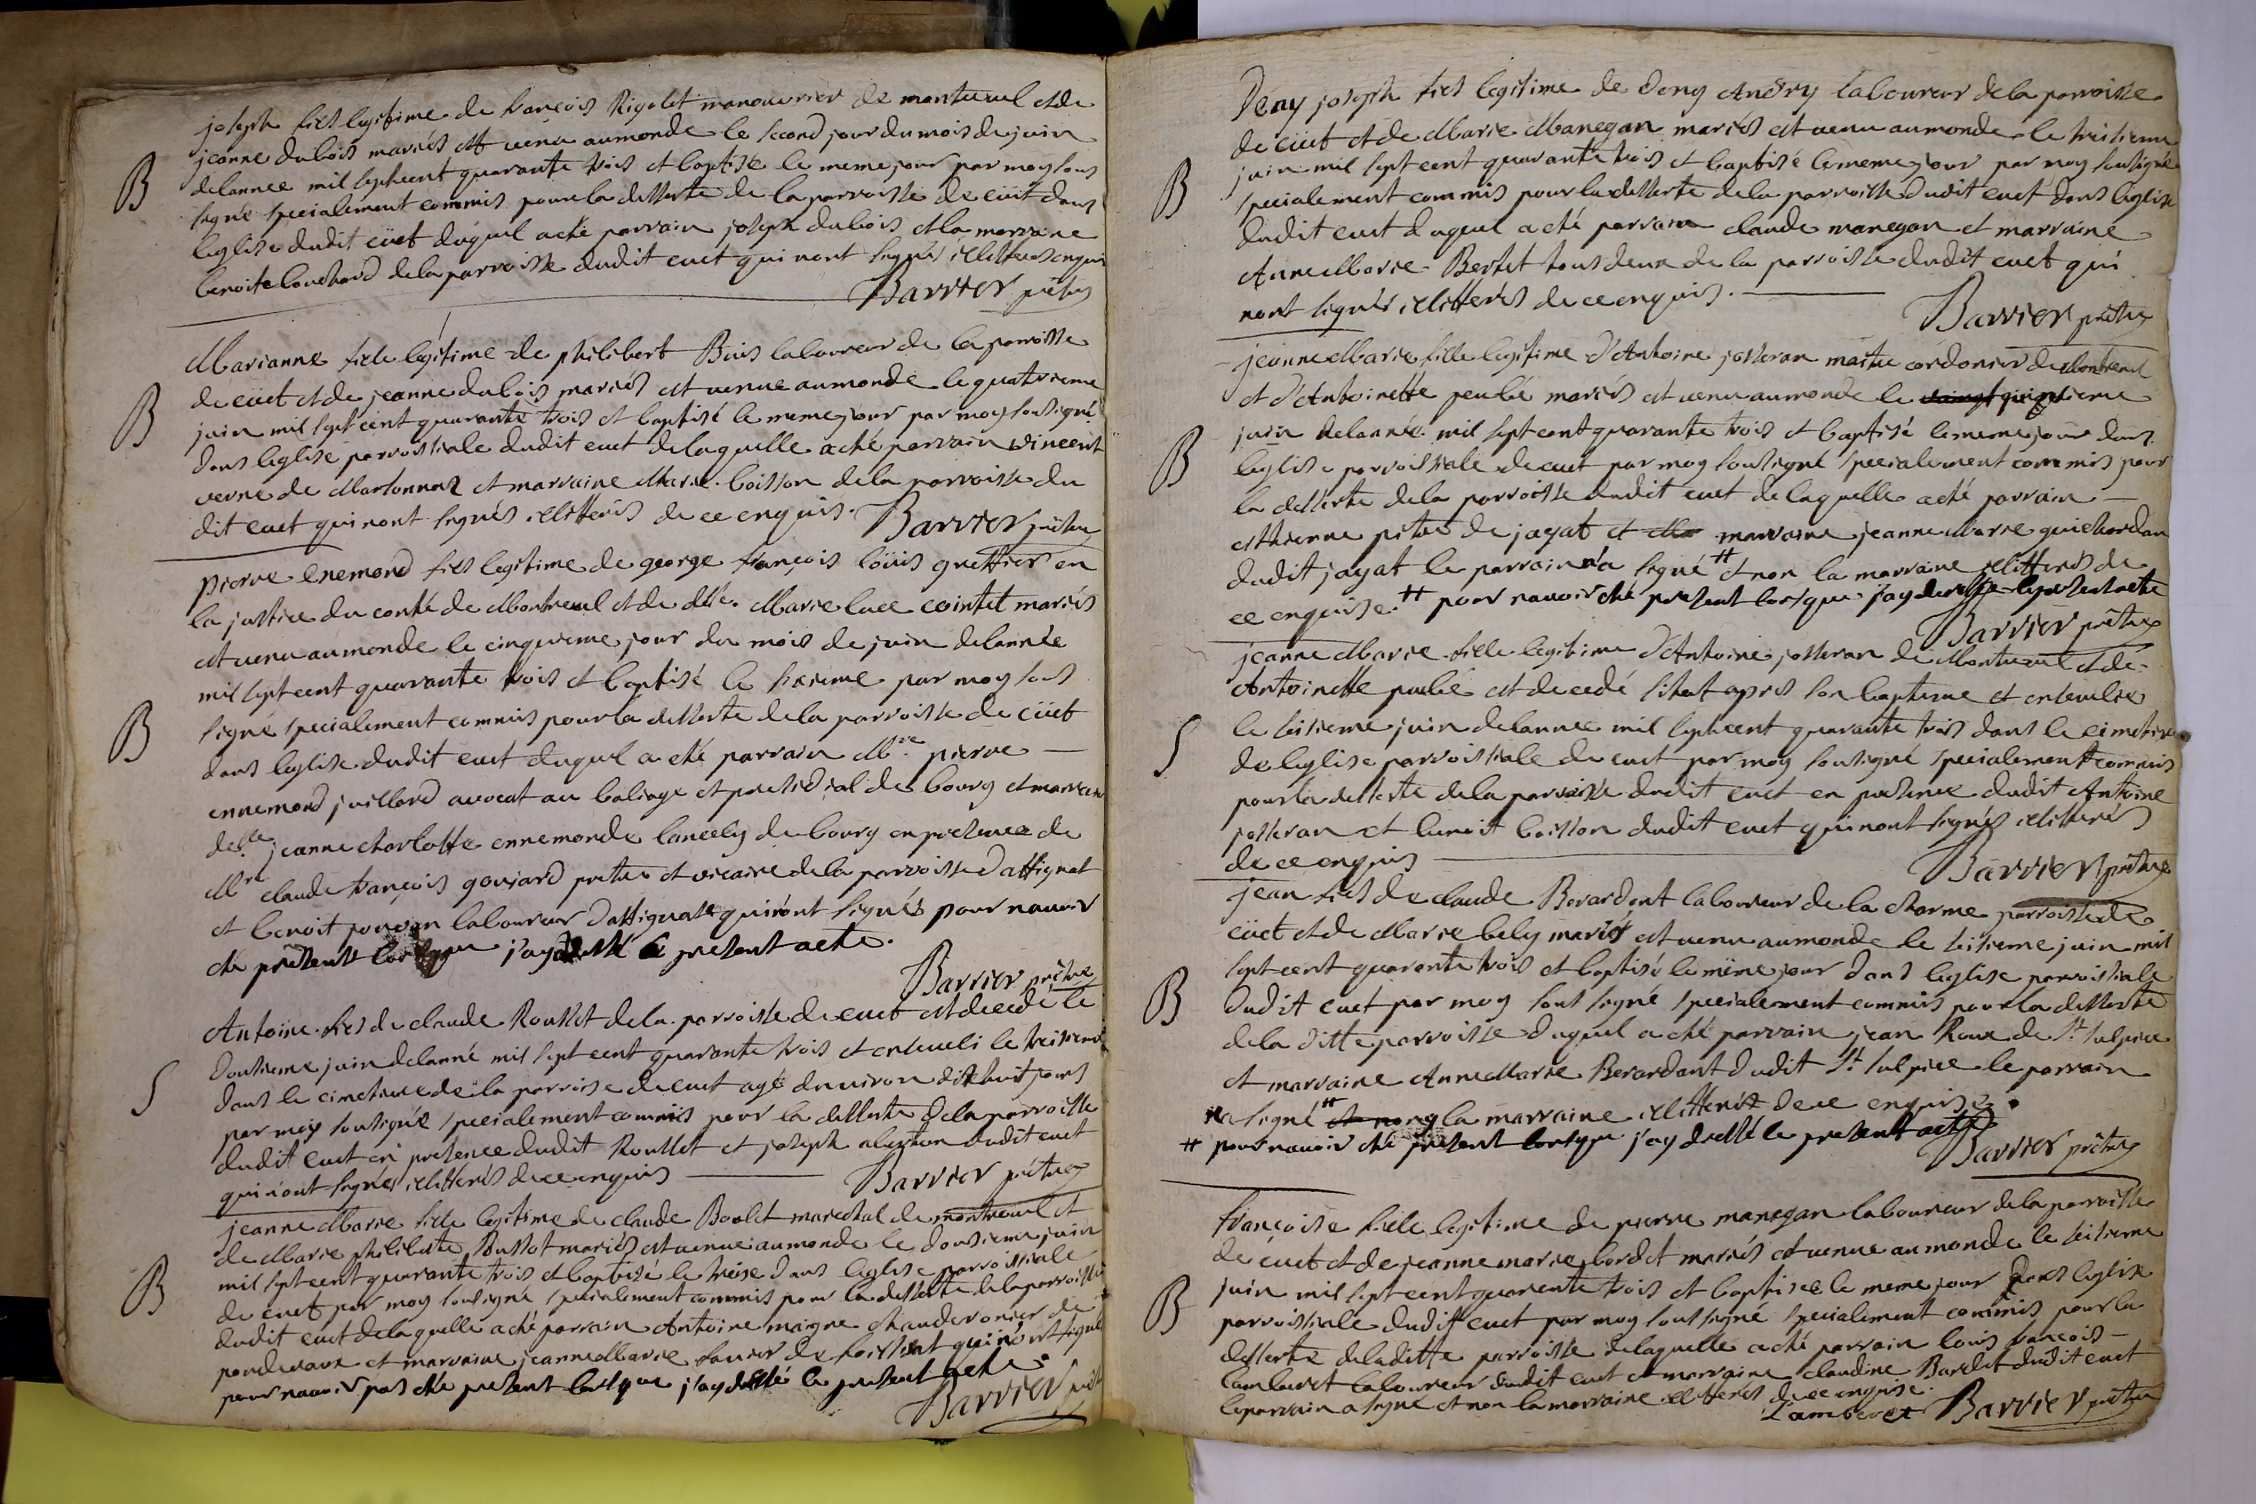 joseph fils legitime de françois Rigolet manouvrier de montreuel et de
jeanne dubois mariés est venu au monde le second jour du mois de juin
B
delannee mil sept cent quarante trois et baptisé le meme jour par moy sous
signé specialement commis pour la desserte de la parroisse de cüet dans
leglise dudit cüet duquel a eté parrain joseph dubois et la marraine
benoite bouchard de la parroisse dudit cuet qui nont signés illitteres enquis
Barrier prêtre
Marianne fille legitime de philibert Buis laboureur de la parroisse
de cüet et de jeanne dubois mariés est venue au monde le quatrieme
B
juin mil sept cent quarante trois et baptisé le meme jour par moy soussigné
dans leglise parroissiale dudit cuet de laquelle a eté parrain vincent
verne de Marsonnas et marraine Marie boisson de la parroisse du
dit cuet qui nont signés illitterés de ce enquis. Barrier prêtre
pierre enemond fils legitime de george françois loüis greffier en
la justice du conté de Montreuel et de dlle. Marie luce cointet mariés
est venu au monde le cinquieme jour du mois de juin delannée
mil sept cent quarante trois et baptisé le sixieme par moy sous
B
signé specialement commis pour la desserte de la parroisse de cüet
dans leglise dudit cuet duquel a eté parrain Mre pierre
ennemond juillard avocat au baliage et presidial de bourg et marraine
delle jeanne charlotte ennemonde lancely de bourg en presence de
Mre claude françois goujard pretre et vicaire de la parroisse dattignat
et benoit laboureur dattignat qui nont signés pour navoir
eté présents lorsque j'ay dressé le present acte.
Barrier prêtre
Antoine fils de claude Rousset de la parroisse de cuet est decedé le
S
dousieme juin delanné mil sept cent quarante trois et enseveli le treisieme
dans le cimetiere de la parroise de cuet agé denviron dix huit jours
par moy soussigné specialement commis pour la desserte de la parroisse
dudit cuet en presence dudit Rousset et joseph dudit cuet
qui nont signés illitterés de ce enquis Barrier prêtre
jeanne Marie fille legitime de claude Boulet marechal de montreuel et
de Marie philiberte mariés est venue au monde le dousieme juin
B
mil sept cent quarante trois et baptisé le treise dans leglise parroissiale
de cuet par moy soussigné specialement commis pour la desserte de la parroisse
dudit cuet de laquelle a eté parrain Antoine maigne chauderonier de
pondevaux et marraine jeanne Marie de qui nont signé
pour navoir pas eté present lorsque j'ay dressé le present acte.
Barrier prêtre
Deny joseph fils legitime de deny Andry laboureur de la parroisse
de cüet et de Marie Manegan mariés est venu au monde le treisieme
B
juin mil sept cent quarante trois et baptisé le meme jour par moy soussigné
specialement commis pour la desserte de la parroisse dudit cuet dans leglise
dudit cuet duquel a eté parrain claude manegan et marraine
Anne Marie Bertet tous deux de la parroisse dudit cuet qui
nont signés illitterés de ce enquis.
Barrier prêtre
jeanne Marie fille legitime d'Antoine josseran maitre cordonier de Montreuel
et d'Antoinette peulié mariés est venu au monde le quinsieme
B
juin delannée mil sept cent quarante trois et baptisé le meme jour dans
leglise parroissiale de cuet par moy soussigné specialement commis pour
la desserte de la parroisse dudit cuet de laquelle a eté parrain
esthienne pitre de jayat et Ma marraine jeanne Marie
dudit jayat le parrain n'a signé # et non la marraine illitteres de
ce enquise. # pour navoir eté present lorsque j'ay dressé le present acte
Barrier prêtre
jeanne Marie fille legitime d'Antoine josseran de Montreuel et de
Antoinette peulié est decedé sitot apres son bapteme et ensevelie
S
le seisieme juin delannee mil sept cent quarante trois dans le cimetiere
de leglise parroissiale de cuet par moy soussigné specialement commis
pour la desserte de la parroisse dudit cuet en presence dudit Antoine
josseran et benoit boisson dudit cuet qui nont signés illitterés
de ce enquis
Barrier prêtre
jean fils de claude Berardant laboureur de la charme parroisse de
cüet et de Marie bely mariés est venu au monde le seisieme juin mil
B
sept cent quarante trois et baptisé le même jour dans leglise parroissiale
dudit cuet par moy sous signé specialement commis pour la desserte
de la ditte parroisse duquel a eté parrain jean Roux de St sulpice
et marraine Anne Marie Berardant dudit St sulpice le parrain
na signé # et non la marraine illitterés de ce enquise.
# pour navoir eté present lorsque j'ay dressé le present acte
Barrier prêtre
françoise fille legitime de pierre manegan laboureur de la parroisse
de cüet et de jeanne marie bordet mariés est venue au monde le seisieme
B
juin mil sept cent quarente trois et baptisee le meme jour dans leglise
parroissiale dudit cuet par moy soussigné specialement commis pour la
desserte de laditte parroisse de laquelle a eté parrain louis françois
lamberet laboureur dudit cuet et marraine claudine Bardet dudit cuet
le parrain a signé et non la marraine illitterés de ce enquise.
Lamberet Barrier prêtre